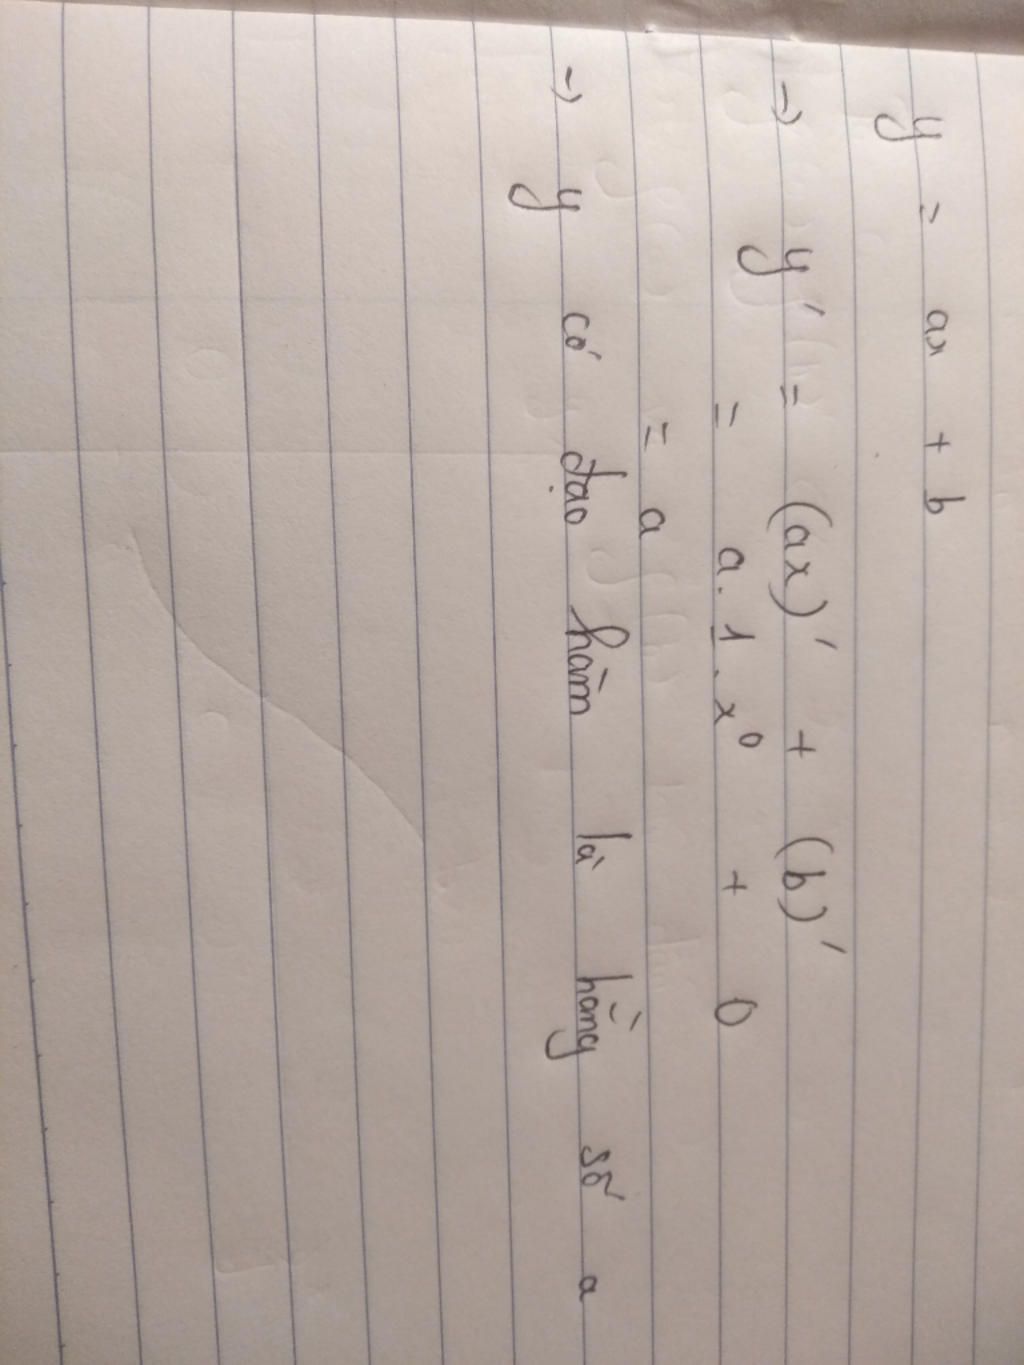 y = ax + b
→ y' = (ax)' + (b)'
= a.1.x⁰ + 0
= a
→ y có đạo hàm là hằng số a